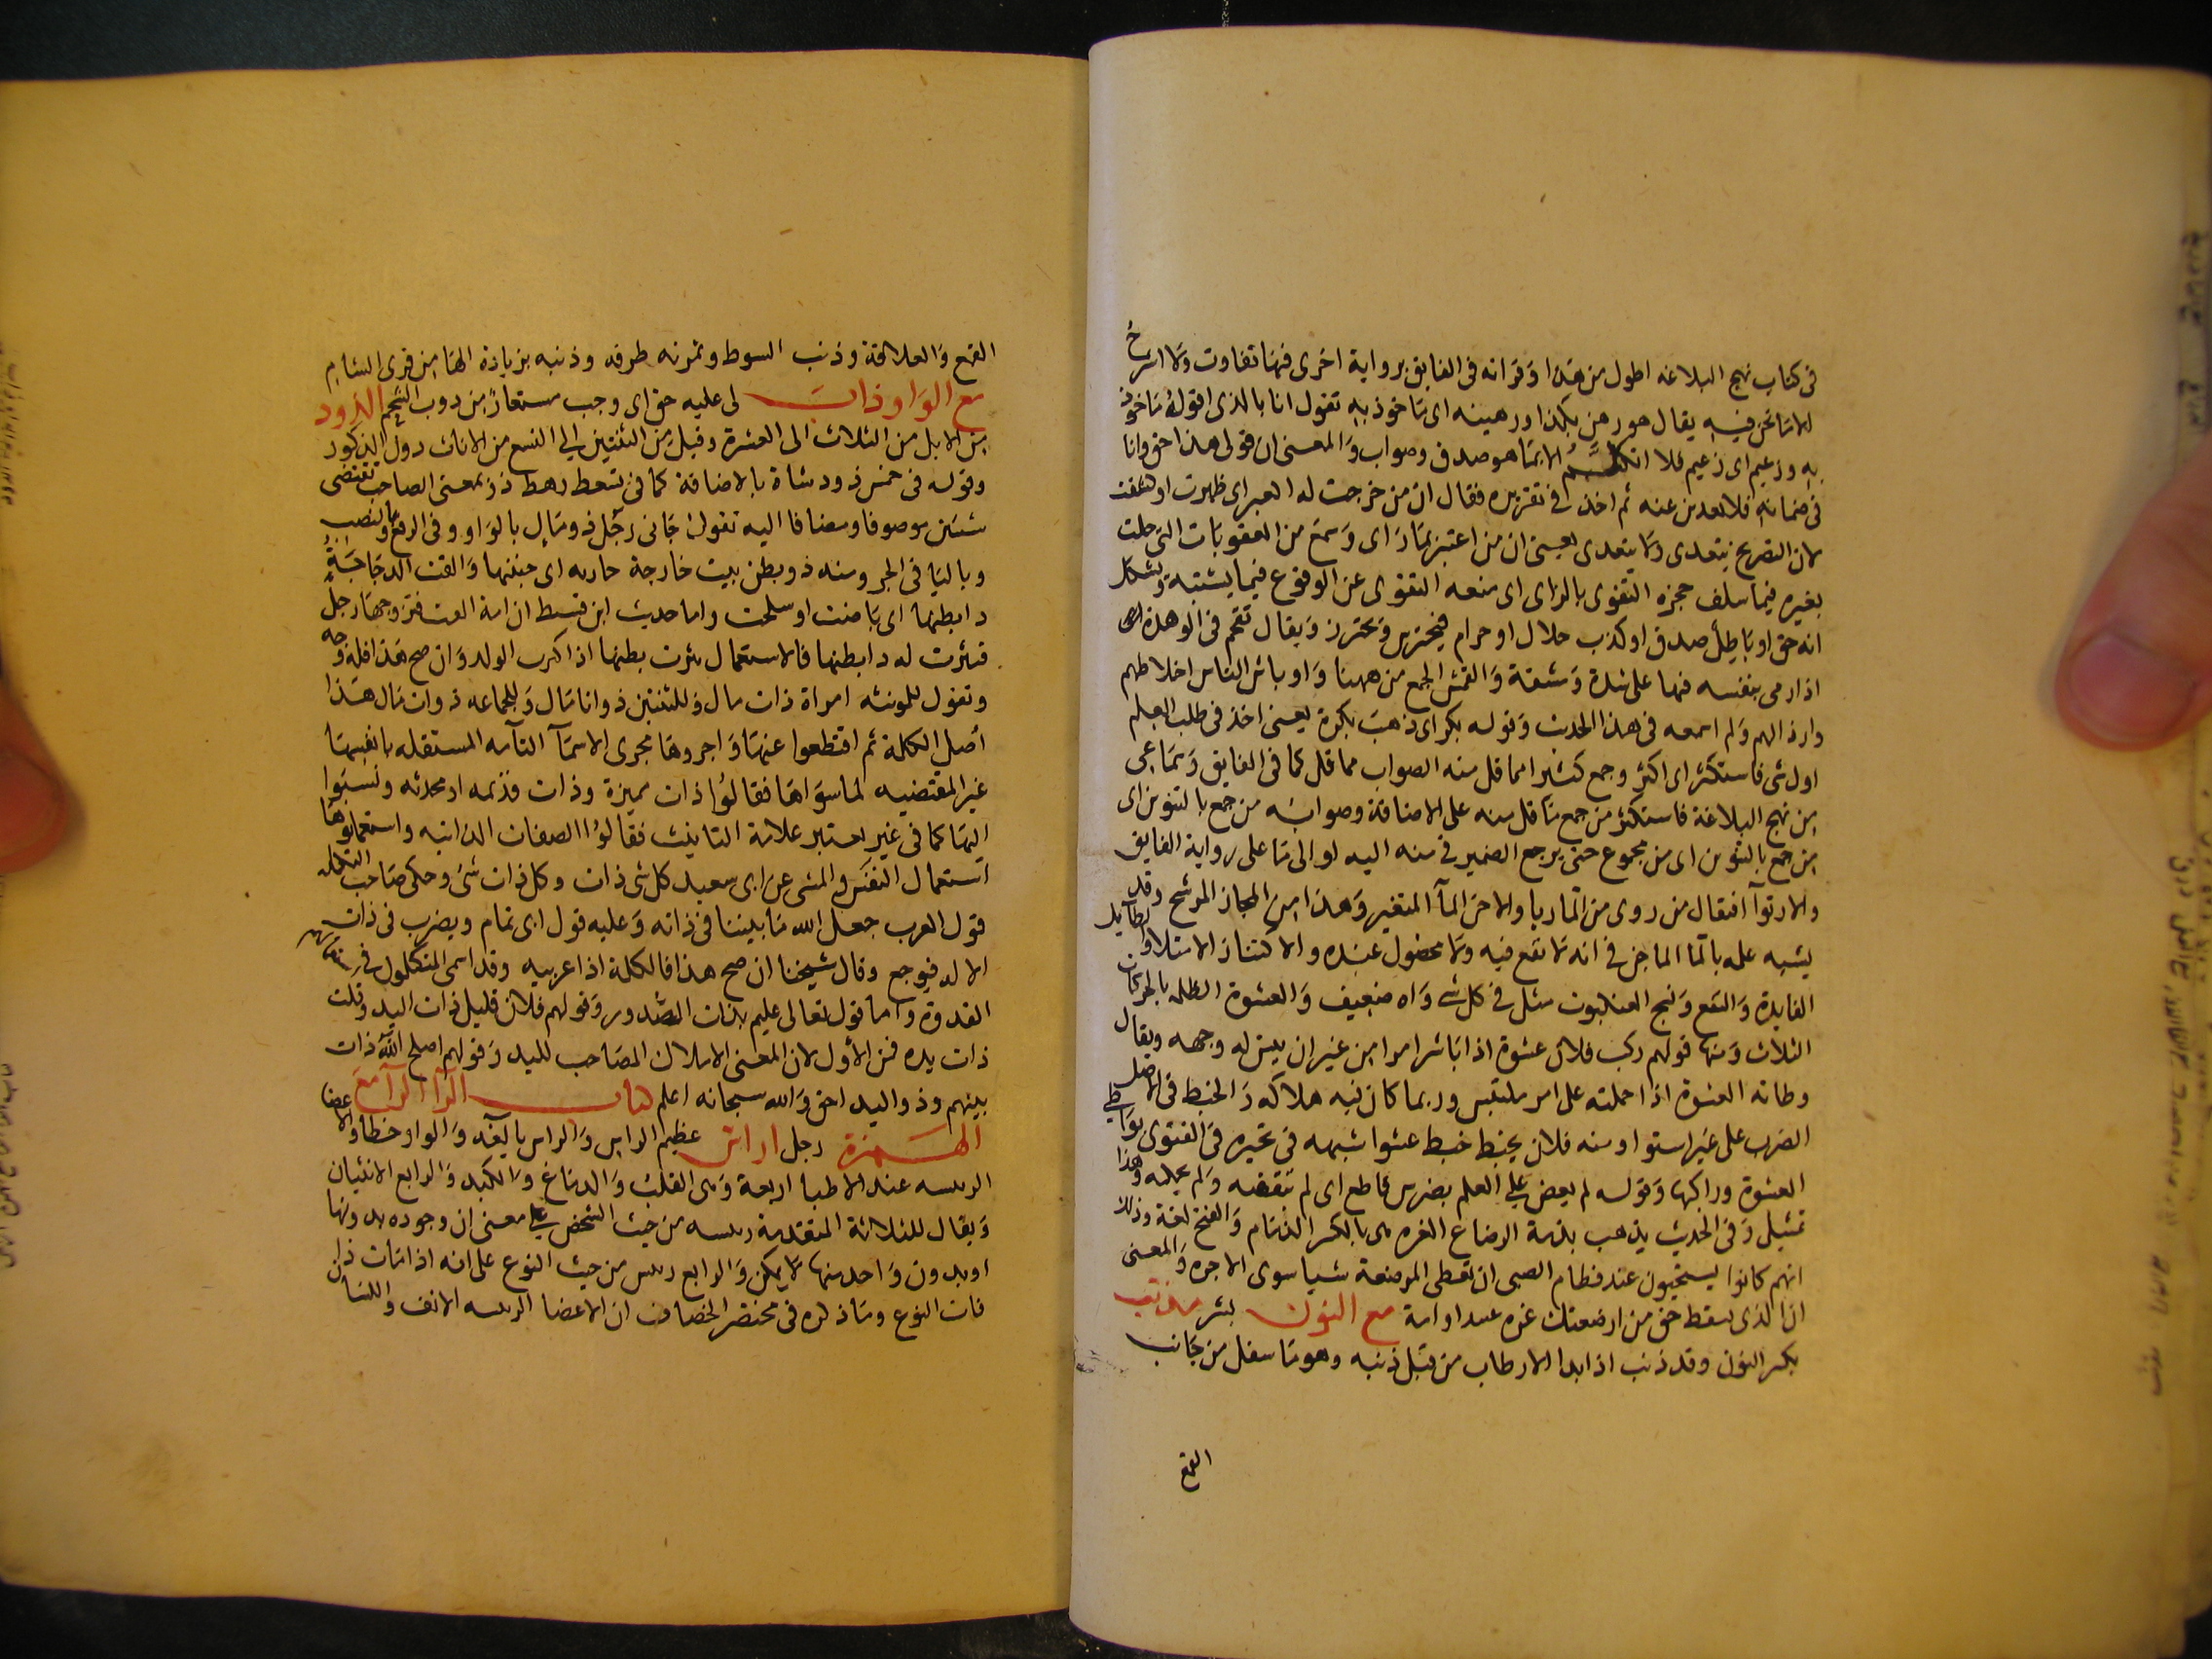 في كتاب نهج البلاغه اطول من هذا وقراته في الفايق برواية اخرى فيها تفاوت ولا اشرح
الا ما نحن فيه يقال هو رهن بكذا ورهينه اى ماخوذ به تقول انا بالذى اقوله ماخوذ
به وزعيم اى زعيم فلا اتكلم الا بما هو صدق وصواب والمعنى ان قولى هذا حق وانا
في ضمانه فلا تعدلن عنه ثم اخذ في تقريره فقال ان من خرجت له العبر اى ظهرت او كشفت
لان التصريح يتعدى ولا يتعدى يعنى ان من اعتبر بما راى وسمع من العقوبات التى حلت
بغيره فيما سلف حجزه التقوى بالزاى اى منعه التقوى عن الوقوع فيما يشتبه ويشكل
انه حق او باطل صدق او كذب حلال او حرام فيحترس ويحترز ويقال تقحم في الوهدة
اذا رمى بنفسه فيها على شدة ومشقة والقمش الجمع من ههنا وههنا واوباش الناس اخلاطهم
وارذالهم ولم اسمعه في هذا الحديث وقوله بكر اى ذهب بكرة يعنى اخذ في طلب العلم
اول شى فاستكثر اى اكثر وجمع كثيرا مما قل منه الصواب مما قل كما في الفايق وسماعى
من نهج البلاغة فاستكثر من جمع ما قل منه على الاضافة وصوابه من جمع بالتنوين اى
من جمع بالتنوين اى من مجموع حتى يرجع الضمير في منه اليه او الى ما على رواية الفايق
والارتوآ افتعال من روى من الما ريا والاجن المآ المتغير وهذا من المجاز المرشح وقد
يشبه علمه بالما الماجن في انه لا نفع فيه ولا محصول عنده والاكتناز الامتلا والطآيل
الفايدة والنفع ونسج العنكبوت مثل في كل شى واه ضعيف والعشوة الظلمه بالحركات
الثلاث ومنها قولهم ركب فلان عشوة اذا باشر امرا من غير ان يبين له وجهه ويقال
وطاته العشوة اذا حملته على امر ملتبس وربما كان فيه هلاكه والخبط في الاصل
الضرب على غير استوا ومنه فلان يخبط خبط عشوا شبهه في تحيره في الفتوى بواطى
العشوة وراكبها وقوله لم يعض على العلم بضرس قاطع اى لم يتقنه ولم يحكمه وهذا
تمثيل وفي الحديث يذهب بذمة الرضاع الغره هى بالكسر الذمام والفتح لغة وذلك
انهم كانوا يستحبون عند فطام الصبى ان تعطى المرضعة شيا سوى الاجره والمعنى
ان الذى يسقط حق من ارضعتك غره عبد او امة مع النون بسر مذنب
بكسر النون وقد ذنب اذا بدا الارطاب من قبل ذنبه وهو ما سفل من جانب
القمع
القمع والعلاقة وذنب السوط وثمرته طرفه وذنبه بزيادة الها من قرى الشام
مع الواو ذاب لى عليه حق اى وجب مستعار من ذوب الشحم الذود
من الابل من الثلاث الى العشرة وقيل من الثنتين الى التسع من الاناث دون الذكور
وقوله في خمس ذود شاة بالاضافة كما في تسعة رهط ذو بمعنى الصاحب تقتضى
شيئين موصوفا ومضافا اليه تقول جانى رجل ذو مال بالواو وفي الرفع وبالنصب
وباليا في الجر ومنه ذو بطن بنت خارجة جارية اى جنينها والقت الدجاجة
ذا بطنها اى باضت او سلحت واما حديث ابن قسيط ان امة ابقت فتزوجها رجل
فنثرت له ذا بطنها فالاستعمال نثرت بطنها اذا اكثرت الولد وان صح هذا فله وجه
وتقول للمونثه امراة ذات مال وللثنتين ذواتا مال وللجماعه ذوات مال هذا
اصل الكلمة ثم اقتطعوا عنها واجروها مجرى الاسمآ التآمه المستقله بانفسها
غير المقتضيه لما سواها فقالوا ذات مميزة وذات قديمه او محدثه ونسبوا
اليها كما هى من غير تغيير علامة التانيث فقالوا الصفات الذاتيه واستعملوها
استعمال النفس والشى عن ابى سعيد كل شى ذات وكل ذات شئ وحكى صاحب التكمله
قول العرب جعل الله ما بيننا في ذاته وعليه قول ابى تمام ويضرب في ذات
الاله فيوجع وقال شيخنا ان صح هذا فالكلمة اذا عربيه وقد اسمى المتكلمون في
القدوة واما قوله تعالى عليم بذات الصدور وقولهم فلان قليل ذات اليد وقلت
ذات يده فمن الاول لان المعنى الاملاك المصاحب لليد وقولهم اصلح الله ذات
بينهم وذو اليد احق والله سبحانه اعلم كتاب الرآ الرآ مع
الهمزة رجل اراس عظيم الراس والراس بالغه والواو خطا والاعضا
الرئيسه عند الاطبا اربعة وهى القلب والدماغ والكبد والرابع الانثيان
ويقال للثلاثة المتقدمة رئيسه من حيث الشخص على معنى ان وجوده بدونها
او بدون واحد منها لا يمكن والرابع رئيس من حيث النوع على انه اذا فات ذلك
فات النوع وما ذكره في مختصر الخصاف ان الاعضا الرئيسه الانف واللسان